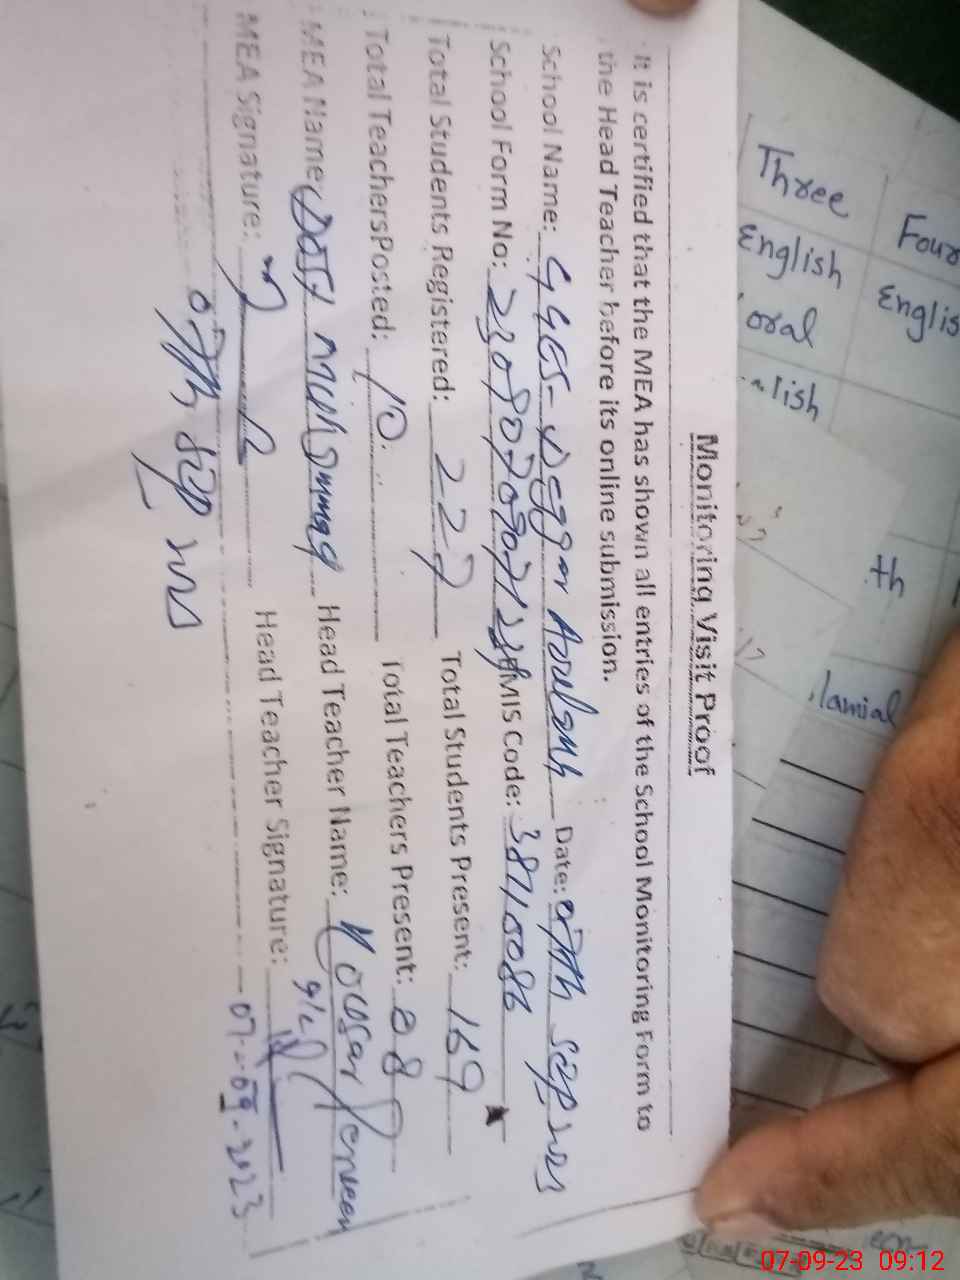 Monitoring Visit Proof
It is certified that the MEA has shown all entries of the School Monitoring Form to
the Head Teacher before its online submission.
School Name: GGES- Date: 07th Sep 2023
School Form No: EMIS Code: 38710086
Total Students Registered: 227 Total Students Present: 169
Total TeachersPosted: 10 Total Teachers Present: 08
MEA Name: Muhammad Head Teacher Name: Kousar Perveen
MEA Signature: Head Teacher Signature:
07th Sep 2023
07-09-2023
Three
Four
English
English
oral
lish
th
07-09-23 09:12